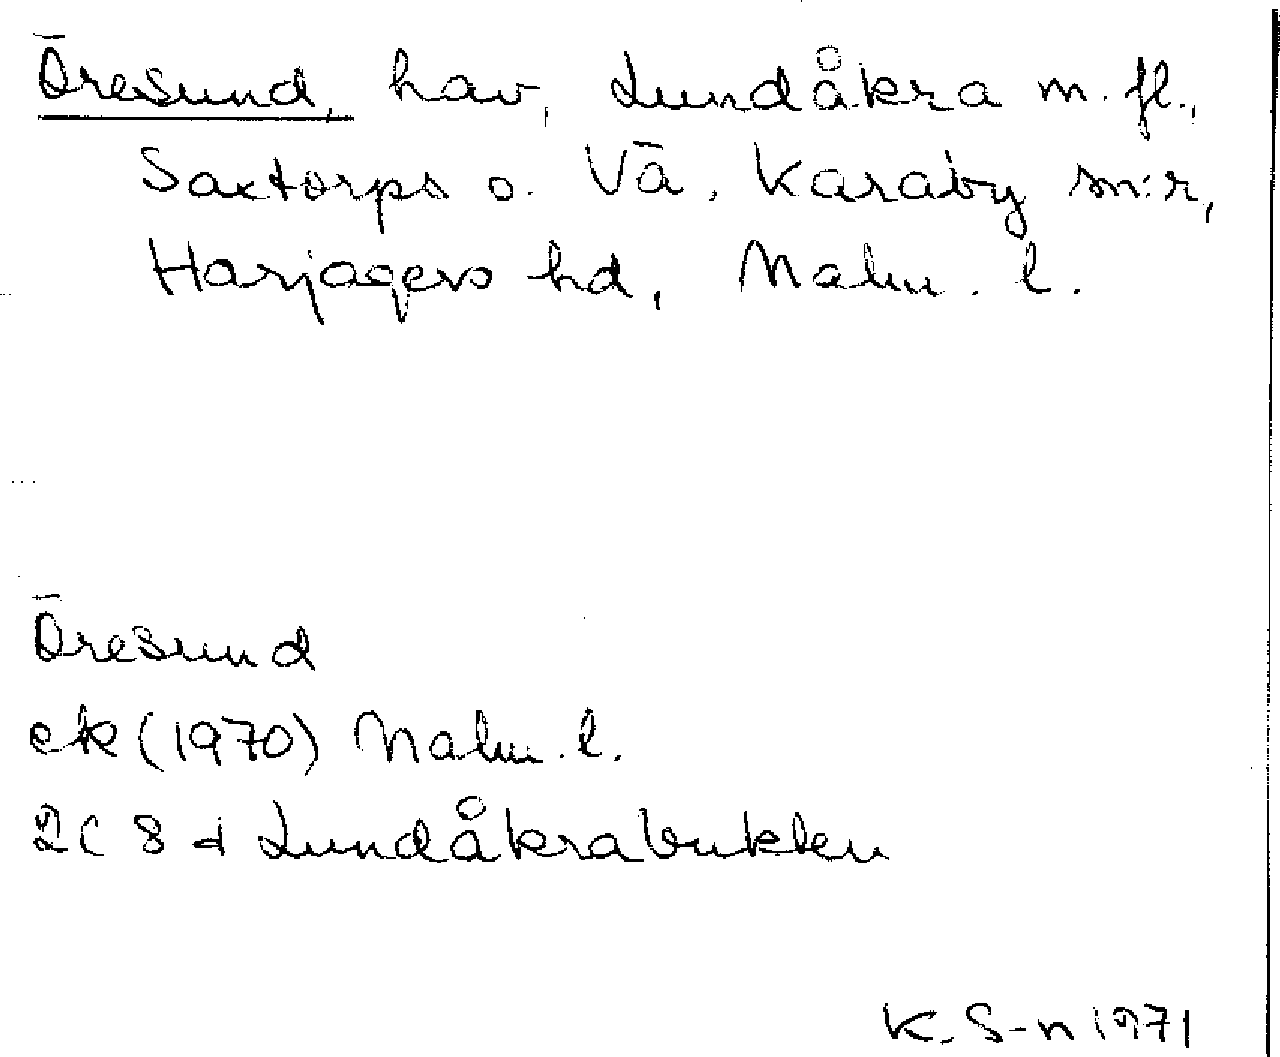 Öresund, hav, Lundåkra m. fl.,
Saxtorps o. Vä. Karaby sn:r,
Harjagers hd, Malm. l.
Öresund
ek (1970) Malm. l.
2C 8 d Lundåkrabukten
K. S-n 1971